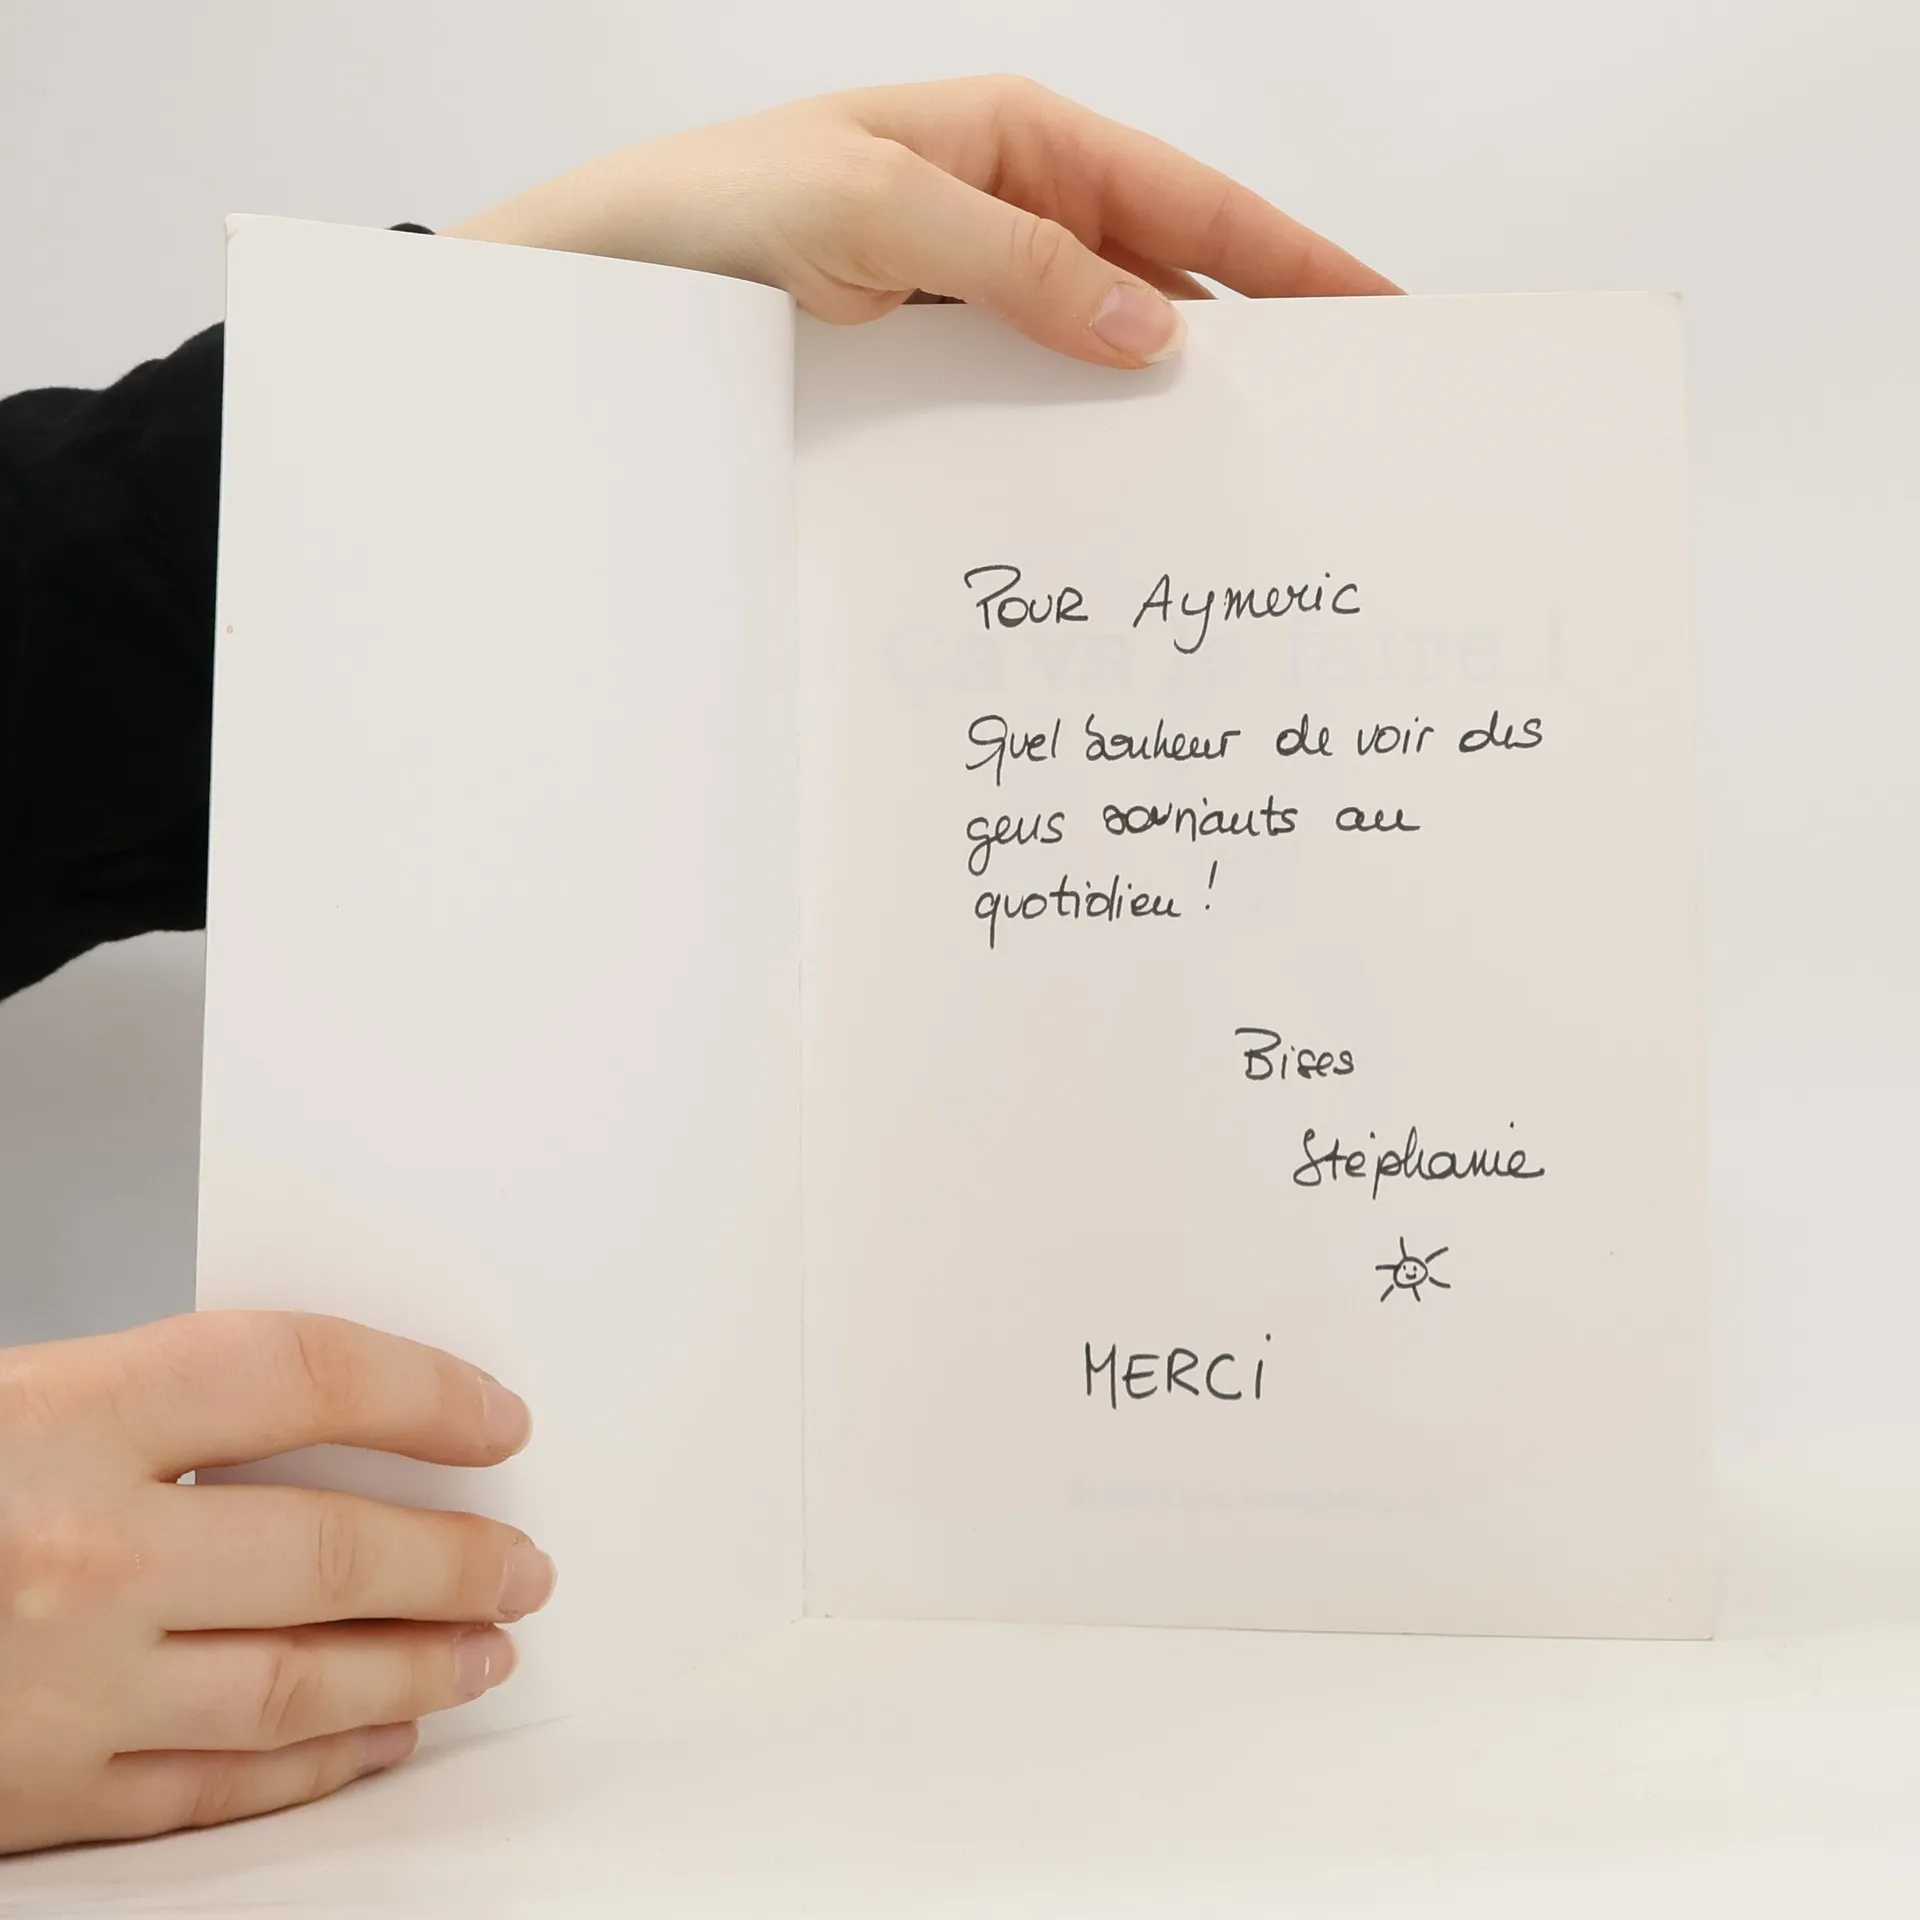 Pour Aymeric
Quel bonheur de voir des
gens souriants au
quotidien !
Bises
Stéphanie
MERCi
ça va le faire !